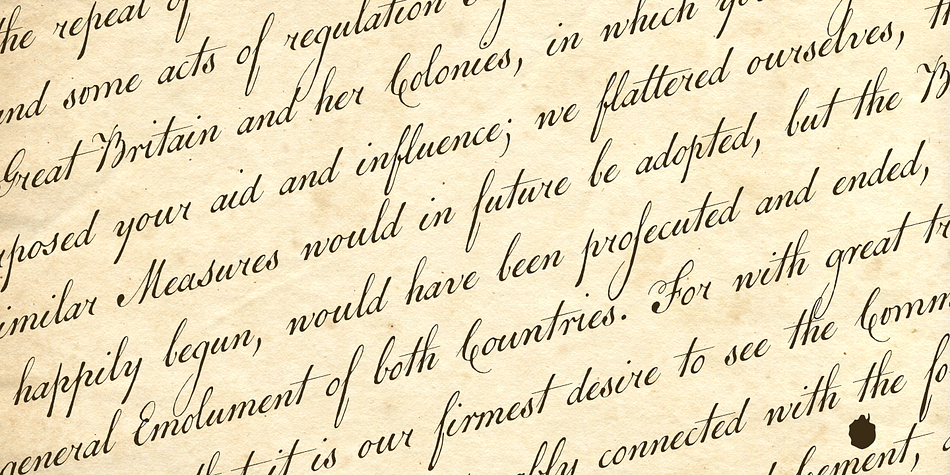 the repeal of
and some acts of regulation
Great Britain and her Colonies, in which you
posed your aid and influence; we flattered ourselves,
imilar Measures would in future be adopted, but the B
happily begun, would have been proſecuted and ended,
general Emolument of both Countries. For with great tr
it is our firmest desire to see the Comm
ably connected with the fo
ement,